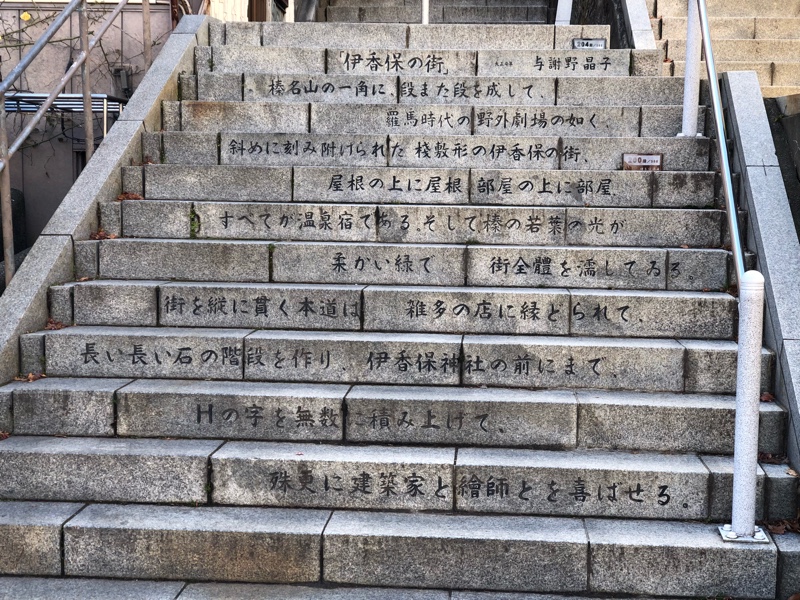 「伊香保の街」 与謝野晶子
榛名山の一角に、段また段を成して、
羅馬時代の野外劇場の如く、
斜めに刻み附けられた 桟敷形の伊香保の街、
屋根の上に屋根、部屋の上に部屋、
すべてが温泉宿である、そして榛の若葉の光が
柔かい緑で 街全體を濡してゐる。
街を縦に貫く本道は 雑多の店に縁どられて、
長い長い石の階段を作り、伊香保神社の前にまで、
Hの字を無数に積み上げて、
殊更に建築家と繪師とを喜ばせる。